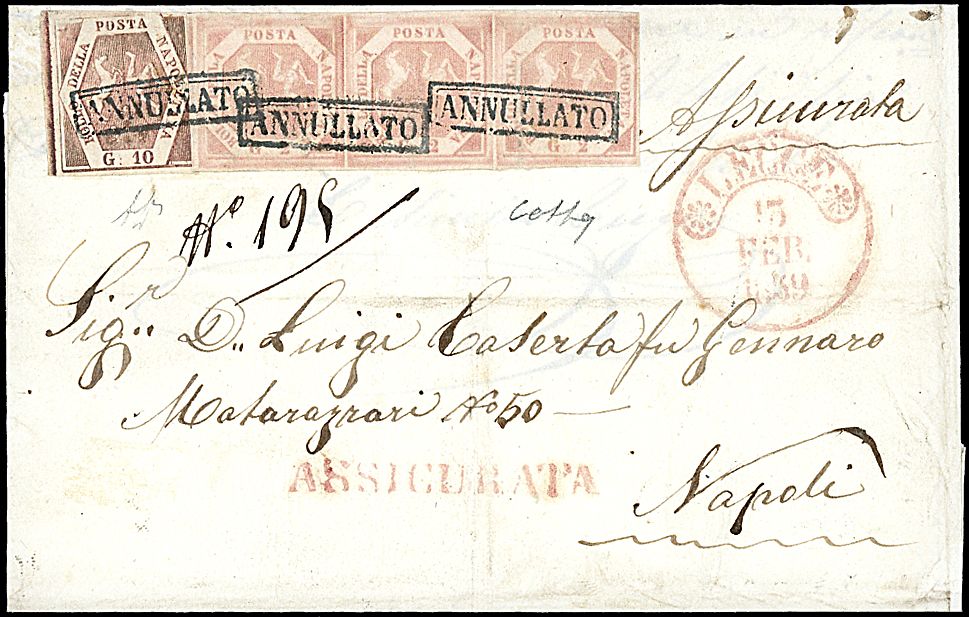 BOLLO DELLA POSTA NAPOLETANA G. 10
BOLLO DELLA POSTA NAPOLETANA G. 2
BOLLO DELLA POSTA NAPOLETANA G. 2
BOLLO DELLA POSTA NAPOLETANA G. 2
ANNULLATO
ANNULLATO
ANNULLATO
Assicurata
LECCE
FEB.
1859
No. 195
Sigr. D. Luigi Caserta fu Gennaro
Matarazzari No 50
ASSICURATA
Napoli